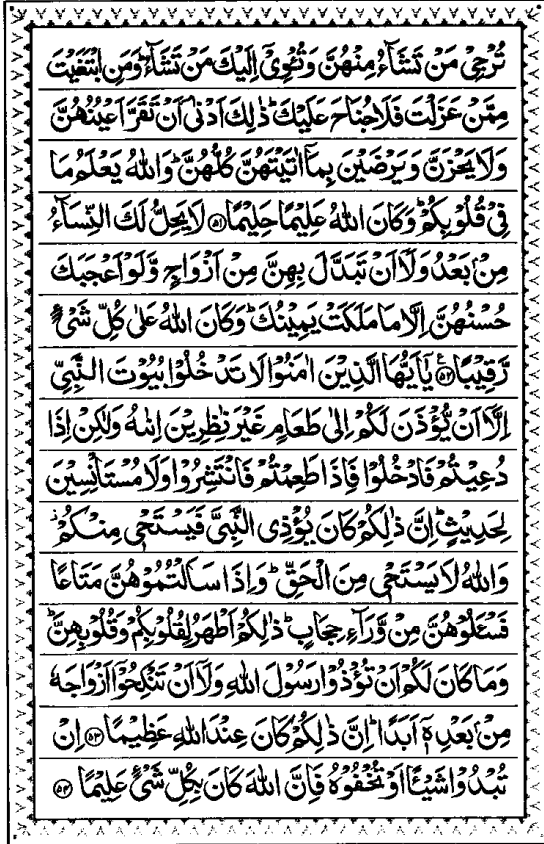 تُرْجِىْ مَنْ تَشَآءُ مِنْهُنَّ وَتُـْٔوِىْۤ اِلَيْكَ مَنْ تَشَآءُ ؕ وَمَنِ ابْتَغَيْتَ
مِمَّنْ عَزَلْتَ فَلَا جُنَاحَ عَلَيْكَ ؕ ذٰلِكَ اَدْنٰۤى اَنْ تَقَرَّ اَعْيُنُهُنَّ
وَلَا يَحْزَنَّ وَيَرْضَيْنَ بِمَاۤ اٰتَيْتَهُنَّ كُلُّهُنَّ ؕ وَاللّٰهُ يَعْلَمُ مَا
فِىْ قُلُوْبِكُمْ ؕ وَكَانَ اللّٰهُ عَلِيْمًا حَلِيْمًا ﴿۵۱﴾ لَا يَحِلُّ لَكَ النِّسَآءُ
مِنْۢ بَعْدُ وَلَاۤ اَنْ تَبَدَّلَ بِهِنَّ مِنْ اَزْوَاجٍ وَّلَوْ اَعْجَبَكَ
حُسْنُهُنَّ اِلَّا مَا مَلَكَتْ يَمِيْنُكَ ؕ وَكَانَ اللّٰهُ عَلٰى كُلِّ شَىْءٍ
رَّقِيْبًا ﴿۵۲﴾ ع يٰۤاَيُّهَا الَّذِيْنَ اٰمَنُوْا لَا تَدْخُلُوْا بُيُوْتَ النَّبِىِّ
اِلَّاۤ اَنْ يُّؤْذَنَ لَكُمْ اِلٰى طَعَامٍ غَيْرَ نٰظِرِيْنَ اِنٰىهُ وَلٰكِنْ اِذَا
دُعِيْتُمْ فَادْخُلُوْا فَاِذَا طَعِمْتُمْ فَانْتَشِرُوْا وَلَا مُسْتَاْنِسِيْنَ
لِحَدِيْثٍ ؕ اِنَّ ذٰلِكُمْ كَانَ يُؤْذِى النَّبِىَّ فَيَسْتَحْىٖ مِنْكُمْ ؗ
وَاللّٰهُ لَا يَسْتَحْىٖ مِنَ الْحَقِّ ؕ وَاِذَا سَاَلْتُمُوْهُنَّ مَتَاعًا
فَسْـَٔلُوْهُنَّ مِنْ وَّرَآءِ حِجَابٍ ؕ ذٰلِكُمْ اَطْهَرُ لِقُلُوْبِكُمْ وَقُلُوْبِهِنَّ ؕ
وَمَا كَانَ لَكُمْ اَنْ تُؤْذُوْا رَسُوْلَ اللّٰهِ وَلَاۤ اَنْ تَنْكِحُوْۤا اَزْوَاجَهٗ
مِنْۢ بَعْدِهٖۤ اَبَدًا ؕ اِنَّ ذٰلِكُمْ كَانَ عِنْدَ اللّٰهِ عَظِيْمًا ﴿۵۳﴾ اِنْ
تُبْدُوْا شَيْـًٔا اَوْ تُخْفُوْهُ فَاِنَّ اللّٰهَ كَانَ بِكُلِّ شَىْءٍ عَلِيْمًا ﴿۵۴﴾